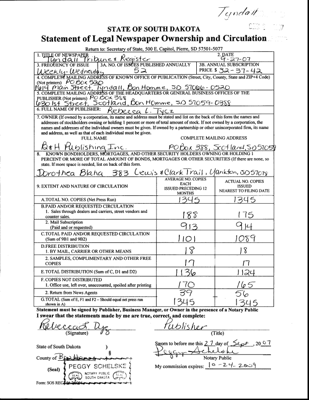 Tyndall
STATE OF SOUTH DAKOTA
Statement of Legal Newspaper Ownership and Circulation
Return to: Secretary of State, 500 E. Capitol, Pierre, SD 57501-5077
1. TITLE OF NEWSPAPER
Tyndall Tribune & Register
2. DATE
9-27-07
3. FREQUENCY OF ISSUE
Weekly-Wednesday
3A. NO. OF ISSUES PUBLISHED ANNUALLY
52
3B. ANNUAL SUBSCRIPTION
PRICE $ 32-37-42
4. COMPLETE MAILING ADDRESS OF KNOWN OFFICE OF PUBLICATION (Street, City, County, State and ZIP+4 Code)
(Not Printers) PO Box 520
Main Street, Tyndall, Bon Homme, SD 57066-0520
5. COMPLETE MAILING ADDRESS OF THE HEADQUARTERS OF GENERAL BUSINESS OFFICES OF THE
PUBLISHER (Not printers) PO Box 388
Street, Scotland, Bon Homme, SD 57059-0388
6. FULL NAME OF PUBLISHER:
Rebecca L. Tycz
7. OWNER (If owned by a corporation, its name and address must be stated and list on the back of this form the names and
addresses of stockholders owning or holding 1 percent or more of total amount of stock. If not owned by a corporation, the
names and addresses of the individual owners must be given. If owned by a partnership or other unincorporated firm, its name
and address, as well as that of each individual must be given.
FULL NAME COMPLETE MAILING ADDRESS
B & H Publishing Inc. PO Box 388, Scotland, SD 57059
8. KNOWN BONDHOLDERS, MORTGAGEES, AND OTHER SECURITY HOLDERS OWNING OR HOLDING 1
PERCENT OR MORE OF TOTAL AMOUNT OF BONDS, MORTGAGES OR OTHER SECURITIES (If there are none, so
state. If more space is needed, list on back of this form.
Dorothea Blaha 383 Lewis & Clark Trail, Yankton, SD 57078
9. EXTENT AND NATURE OF CIRCULATION
AVERAGE NO. COPIES
EACH
ISSUED PRECEDING 12
MONTHS
ACTUAL NO. COPIES
ISSUED
NEAREST TO FILING DATE
A. TOTAL NO. COPIES (Net Press Run) 1345 1345
B. PAID AND/OR REQUESTED CIRCULATION
1. Sales through dealers and carriers, street vendors and
counter sales. 188 175
2. Mail Subscription
(Paid and or requested) 913 914
C. TOTAL PAID AND/OR REQUESTED CIRCULATION
(Sum of 9B1 and 9B2) 1101 1089
D. FREE DISTRIBUTION
1. BY MAIL, CARRIER OR OTHER MEANS 18 18
2. SAMPLES, COMPLIMENTARY AND OTHER FREE
COPIES 17 17
E. TOTAL DISTRIBUTION (Sum of C, D1 and D2) 1136 1124
F. COPIES NOT DISTRIBUTED
1. Office use, left over, unaccounted, spoiled after printing 170 165
2. Return from News Agents 39 56
G. TOTAL (Sum of E, F1 and F2 - Should equal net press run
shown in A) 1345 1345
Statement must be signed by Publisher, Business Manager, or Owner in the presence of a Notary Public
I swear that the statements made by me are true, correct, and complete:
Rebecca L. Tycz Publisher
(Signature) (Title)
State of South Dakota )
Signed to before me this 27 day of Sept, 2007
County of Bon Homme
Peggy Schelske
Notary Public
(Seal)
PEGGY SCHELSKE
NOTARY PUBLIC
SOUTH DAKOTA
My commission expires: 10-24-2009